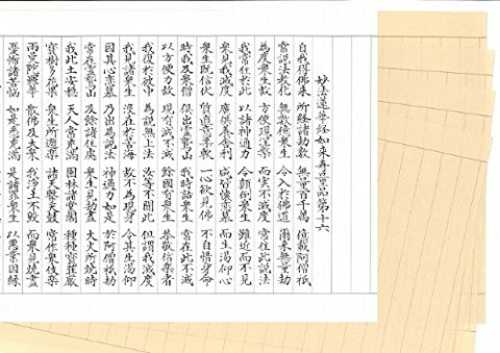 妙法蓮華経如来寿量品第十六
自我得佛来 所経諸劫数 無量百千萬 億載阿僧祇
常説法教化 無数億衆生 令入於佛道 爾来無量劫
為度衆生故 方便現涅槃 而実不滅度 常住此説法
我常住於此 以諸神通力 令顛倒衆生 雖近而不見
衆見我滅度 廣供養舎利 咸皆懐恋慕 而生渇仰心
衆生既信伏 質直意柔軟 一心欲見佛 不自惜身命
時我及衆僧 倶出霊鷲山 我時語衆生 常在此不滅
以方便力故 現有滅不滅 餘國有衆生 恭敬信楽者
我復於彼中 為説無上法 汝等不聞此 但謂我滅度
我見諸衆生 没在於苦海 故不為現身 令其生渇仰
因其心恋慕 乃出為説法 神通力如是 於阿僧祇劫
常在霊鷲山 及餘諸住處 衆生見劫盡 大火所焼時
我此土安穏 天人常充満 園林諸堂閣 種種寶荘厳
寶樹多花菓 衆生所遊楽 諸天撃天鼓 常作衆伎楽
雨曼陀羅華 散佛及大衆 我浄土不毀 而衆見焼盡
憂怖諸苦悩 如是悉充満 是諸罪衆生 以悪業因縁